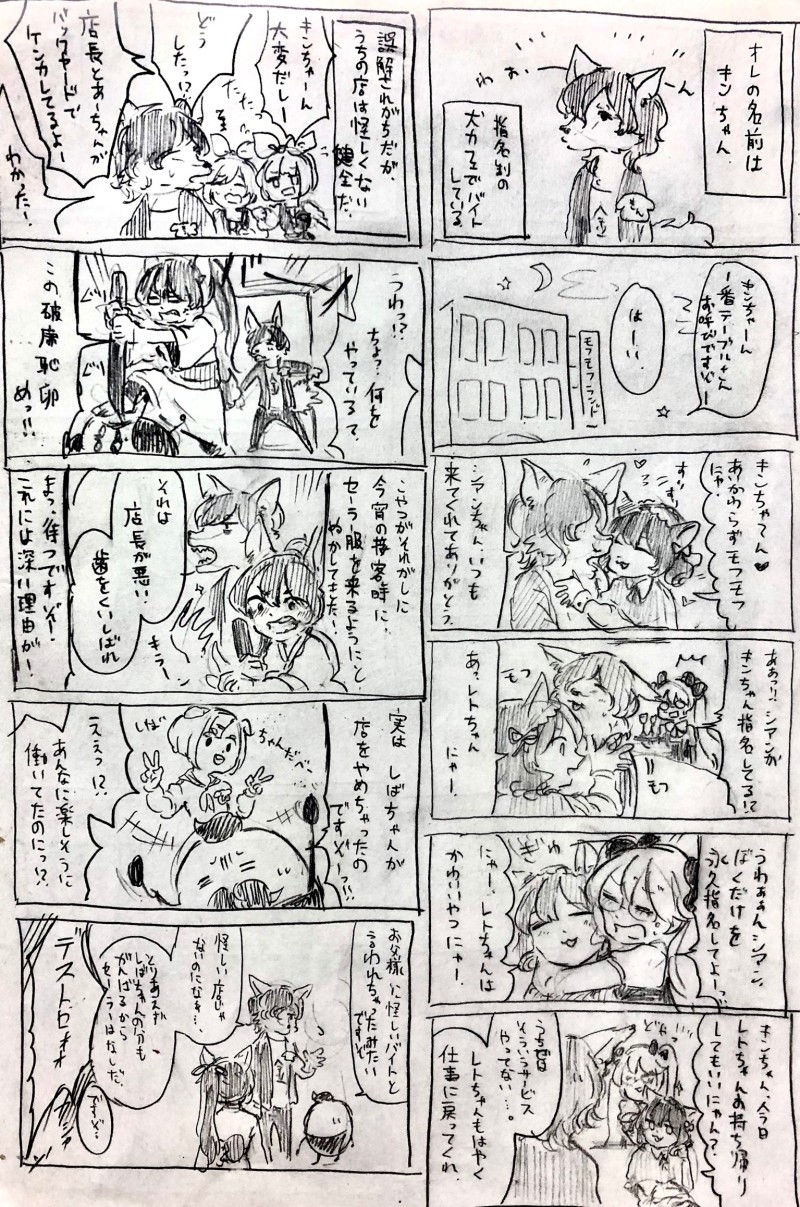 オレの名前は
キンちゃん
指名制の
犬カフェでバイト
している。
キンちゃーん
一番テーブルさん
お呼びですぞー
はーい。
モフモフランド
キンちゃてん♥
あいかわらずモフモフ
にゃ。
すり
すり
シアンちゃん、いつも
来てくれてありがとう。
ああっ!シアンが
キンちゃん指名してる!?
もっ
もっ
あっ、レトちゃん
にゃー。
うわぁぁんシアン、
ぼくだけを
永久指名してよーっ
ぎゅ
にゃー。レトちゃんは
かわいいやつにゃー。
キンちゃん、今日
レトちゃんお持ち帰り
してもいいにゃん?
どんっ
うちは
そういうサービス
やってない…。
レトちゃんもはやく
仕事に戻ってくれ。
誤解されがちだが、
うちの店は怪しくない
健全だ。
キンちゃーん
大変だしー
どう
したっ!?
店長とあーちゃんが
バックヤードで
ケンカしてるよー
わかった!
うわっ!?
ちょ?何を
やっているて
ぐ
ぐり
この破廉恥卵
めっ!!
こやつがそれがしに
今宵の接客時に、
セーラー服を来るようにと
ぬかしてきた!
それは
店長が悪い
歯をくいしばれ
キラーン
まっ、待つですぞ!
これには深い理由が!
実は しばちゃんが
店をやめちゃったの
ですぞっ!!
しば
ちゃんだべー
ええっ!?
あんなに楽しそうに
働いてたのにっ!?
お父様に怪しいバイトと
うたがわれちゃったみたい
ですぞ
怪しい店じゃ
ないのになぁ…。
とりあえず
しばちゃんの分も
がんばるから
セーラーはなしだ。
ですぞ…
デストロォォ